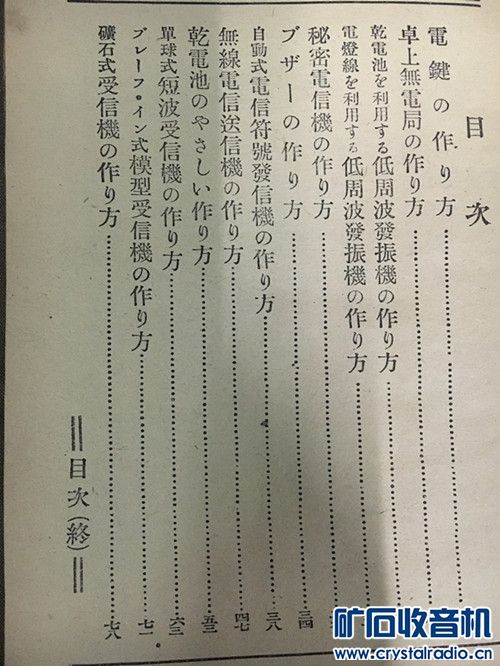 目次
電鍵の作り方
卓上無電局の作り方
乾電池を利用する低周波發振機の作り方
電燈線を利用する低周波發振機の作り方
秘密電信機の作り方
ブザーの作り方……三四
自動式電信符號發信機の作り方……三八
無線電信送信機の作り方……四七
乾電池のやさしい作り方……五三
單球式短波受信機の作り方……六三
ブレーフ・イン式模型受信機の作り方……七一
礦石式受信機の作り方……七八
目次(終)
矿石收音机
www.crystalradio.cn